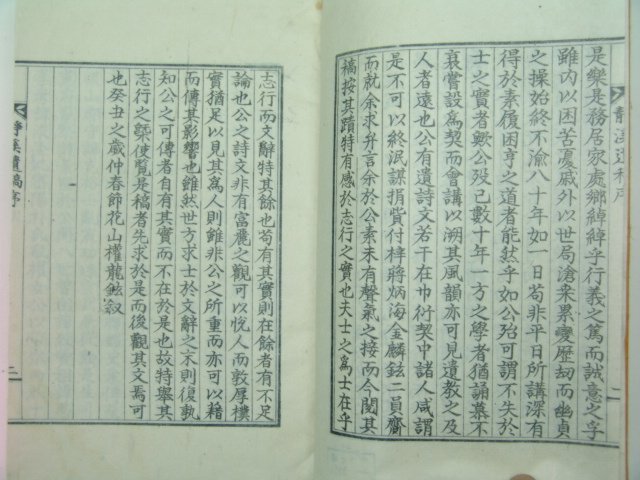 靜溪遺稿序
是樂是務居家處鄉綽綽乎行義之篤而誠意之孚
雖內以困苦憂戚外以世局滄桑累變歷劫而幽貞
之操始終不渝八十年如一日苟非平日所講深有
得於素履困亨之道者能然乎如公殆可謂不失於
士之實者歟公歿已數十年一方之學者猶誦慕不
衰嘗設爲契而會講以溯其風韻亦可見遺教之及
人者遠也公有遺詩文若干在巾衍契中諸人咸謂
是不可以終泯謀捐貲付梓將炳海金麟鉉二員齎
而就余求弁言余於公素未有聲氣之接而今閱其
稿按其蹟特有感於志行之實也夫士之爲士在乎
二
志行而文辭特其餘也苟有其實則在餘者有不足
論也公之詩文非有富麗之觀可以悅人而敦厚樸
實猶足以見其爲人則雖非公之所重而亦可以藉
而傳其影響也雖然世方求士於文辭之末則復孰
知公之可傳者自有其實而不在於是也故特擧其
志行之槩使覽是稿者先求於是而後觀其文焉可
也癸丑之歲仲春節花山權龍鉉叙
靜溪遺稿序
二